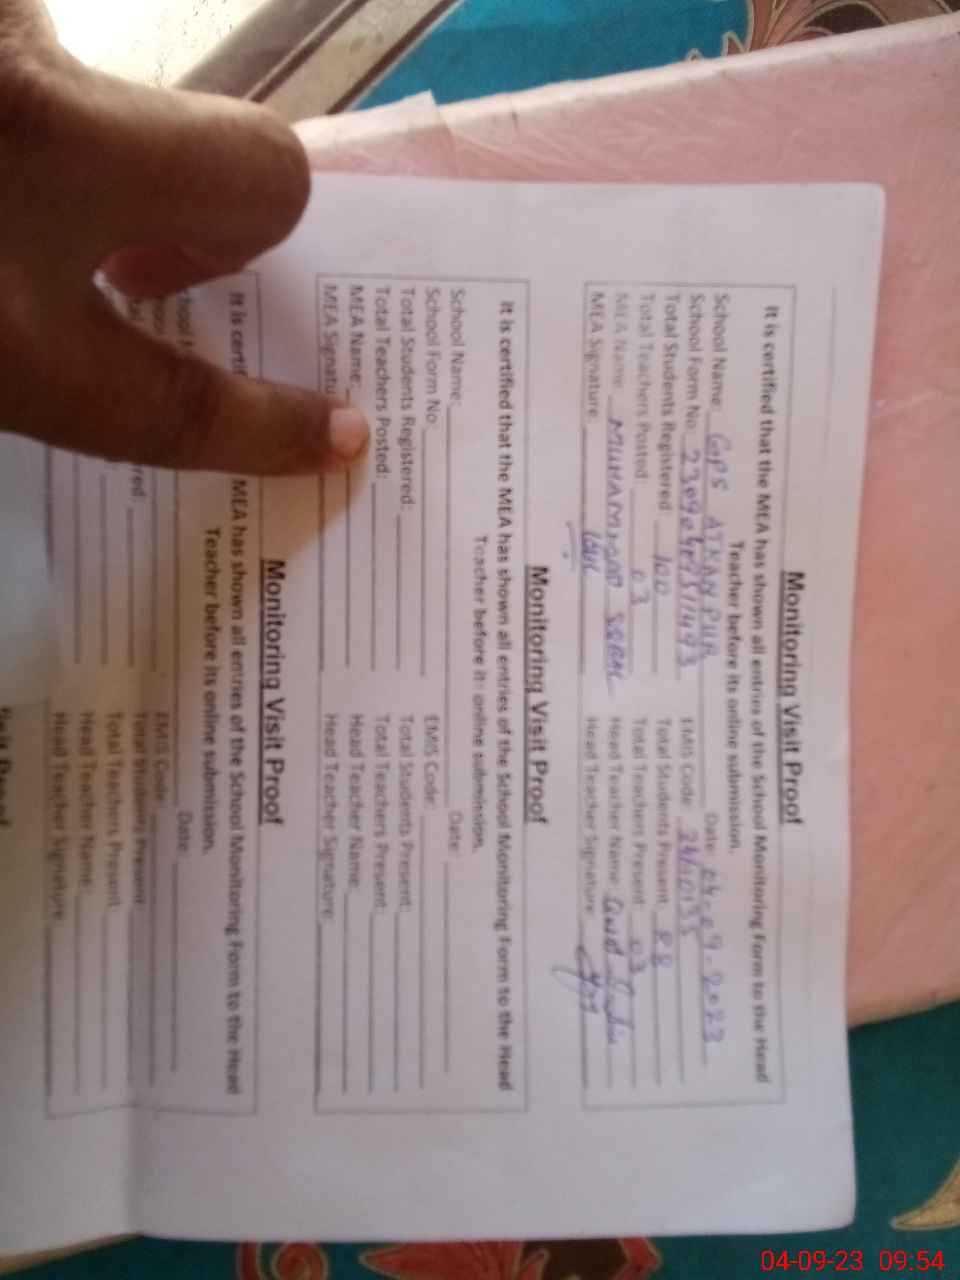 Monitoring Visit Proof
It is certified that the MEA has shown all entries of the School Monitoring Form to the Head
Teacher before its online submission.
School Name: GPS Date: 04-09-2023
School Form No: EMIS Code:
Total Students Registered: 100 Total Students Present: 88
Total Teachers Posted: 03 Total Teachers Present: 03
MEA Name: MUHAMMAD Head Teacher Name:
MEA Signature: Head Teacher Signature:
Monitoring Visit Proof
It is certified that the MEA has shown all entries of the School Monitoring Form to the Head
Teacher before its online submission.
School Name: Date:
School Form No: EMIS Code:
Total Students Registered: Total Students Present:
Total Teachers Posted: Total Teachers Present:
MEA Name: Head Teacher Name:
MEA Signatu Head Teacher Signature:
Monitoring Visit Proof
It is certi MEA has shown all entries of the School Monitoring Form to the Head
Teacher before its online submission.
Date:
EMIS Code:
red: Total Students Present:
Total Teachers Present:
Head Teacher Name:
Head Teacher Signature:
04-09-23 09:54